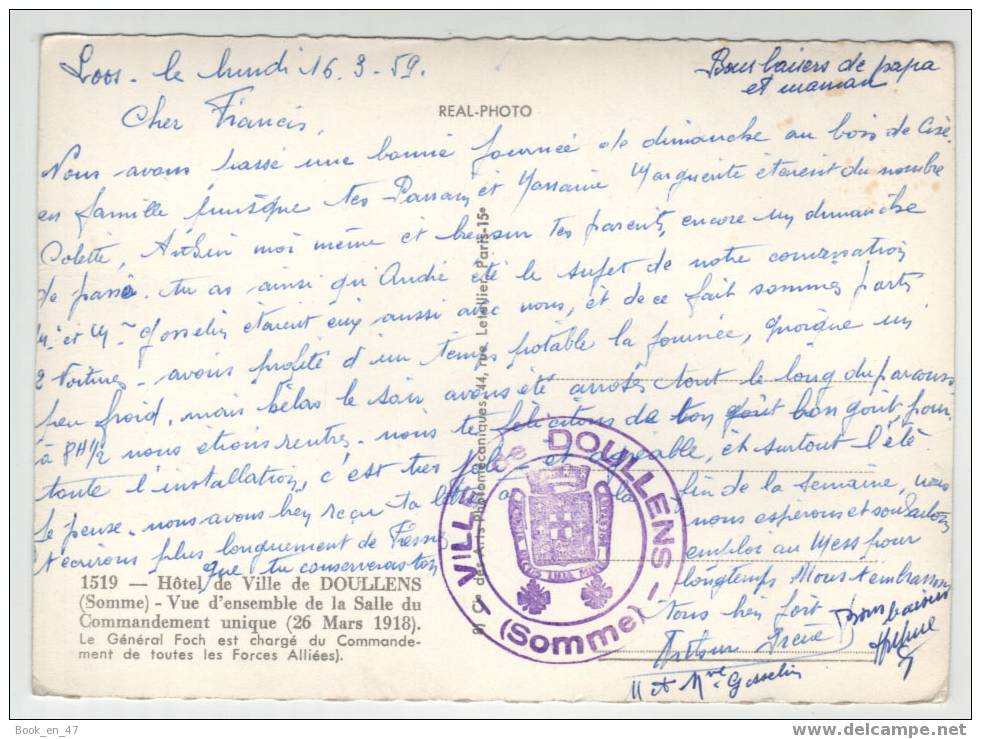 Loos - le lundi 16.3-59.
Bons baisers de papa
et maman
Cher Francis,
REAL-PHOTO
Nous avons passé une bonne journée de dimanche au bois de Cisé
en famille puisque tes et Marguerite étaient du nombre
Colette, moi même et tes parents, encore un dimanche
de passé. tu as ainsi qu'André été le sujet de notre conversation
Mr et Mme Gosselin étaient eux aussi avec nous, et de ce fait sommes partis
2 voitures - avons profité d'un temps potable la journée, quoique un
peu froid, mais hélas le soir avons été arrosés tout le long du parcours
à 8H1/2 nous étions rentrés - nous te félicitons de ton goût bon goût pour
toute l'installation, c'est très joli - et agréable, et surtout l'été
je pense - nous avons bien reçu ta fin de la semaine, nous
t'écrirons plus longuement de nous espérons et souhaitons
que tu conserveras ton emploi au Mess pour
longtemps Nous t'embrassons
tous bien fort
Arthur Irène
Bons baisers
Mr et Mme Gosselin
VILLE de DOULLENS
(Somme)
des Arts Photomécaniques, 44, rue Letellier, Paris-15e
1519 — Hôtel de Ville de DOULLENS
(Somme) - Vue d'ensemble de la Salle du
Commandement unique (26 Mars 1918).
Le Général Foch est chargé du Commande-
ment de toutes les Forces Alliées).
Book_en_47
www.delcampe.net